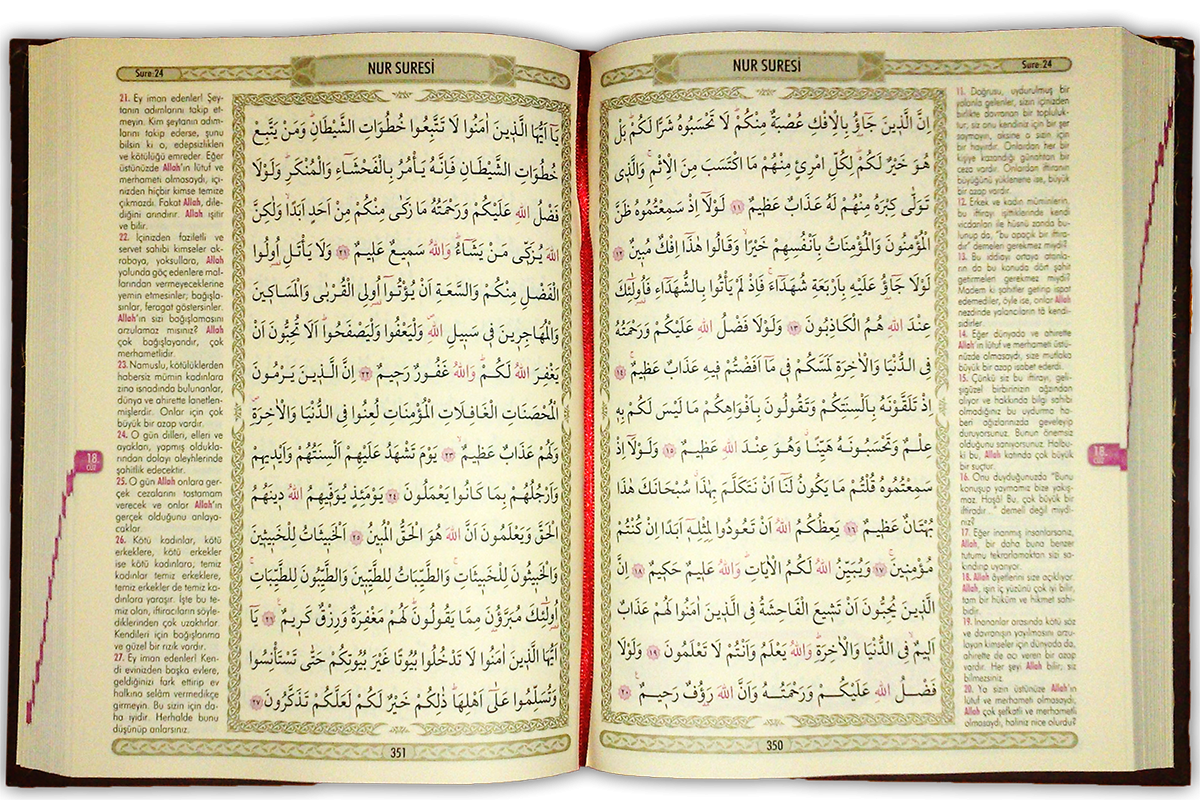 NUR SURESİ
Sure:24
اِنَّ الَّذ۪ينَ جَٓاؤُ۫ بِالْاِفْكِ عُصْبَةٌ مِنْكُمْۜ لَا تَحْسَبُوهُ شَرًّا لَكُمْۜ بَلْ
هُوَ خَيْرٌ لَكُمْۜ لِكُلِّ امْرِئٍ مِنْهُمْ مَا اكْتَسَبَ مِنَ الْاِثْمِۚ وَالَّذ۪ي
تَوَلّٰى كِبْرَهُ مِنْهُمْ لَهُ عَذَابٌ عَظ۪يمٌ ﴿١١﴾ لَوْلَٓا اِذْ سَمِعْتُمُوهُ ظَنَّ
الْمُؤْمِنُونَ وَالْمُؤْمِنَاتُ بِاَنْفُسِهِمْ خَيْرًاۙ وَقَالُوا هٰذَٓا اِفْكٌ مُب۪ينٌ ﴿١٢﴾
لَوْلَا جَٓاؤُ۫ عَلَيْهِ بِاَرْبَعَةِ شُهَدَٓاءَۚ فَاِذْ لَمْ يَأْتُوا بِالشُّهَدَٓاءِ فَاُو۬لٰٓئِكَ
عِنْدَ اللّٰهِ هُمُ الْكَاذِبُونَ ﴿١٣﴾ وَلَوْلَا فَضْلُ اللّٰهِ عَلَيْكُمْ وَرَحْمَتُهُ
فِي الدُّنْيَا وَالْاٰخِرَةِ لَمَسَّكُمْ ف۪ي مَٓا اَفَضْتُمْ ف۪يهِ عَذَابٌ عَظ۪يمٌۚ ﴿١٤﴾
اِذْ تَلَقَّوْنَهُ بِاَلْسِنَتِكُمْ وَتَقُولُونَ بِاَفْوَاهِكُمْ مَا لَيْسَ لَكُمْ بِه۪
عِلْمٌ وَتَحْسَبُونَهُ هَيِّنًاۗ وَهُوَ عِنْدَ اللّٰهِ عَظ۪يمٌ ﴿١٥﴾ وَلَوْلَٓا اِذْ
سَمِعْتُمُوهُ قُلْتُمْ مَا يَكُونُ لَنَٓا اَنْ نَتَكَلَّمَ بِهٰذَاۗ سُبْحَانَكَ هٰذَا
بُهْتَانٌ عَظ۪يمٌ ﴿١٦﴾ يَعِظُكُمُ اللّٰهُ اَنْ تَعُودُوا لِمِثْلِه۪ٓ اَبَدًا اِنْ كُنْتُمْ
مُؤْمِن۪ينَۚ ﴿١٧﴾ وَيُبَيِّنُ اللّٰهُ لَكُمُ الْاٰيَاتِۜ وَاللّٰهُ عَل۪يمٌ حَك۪يمٌ ﴿١٨﴾ اِنَّ
الَّذ۪ينَ يُحِبُّونَ اَنْ تَش۪يعَ الْفَاحِشَةُ فِي الَّذ۪ينَ اٰمَنُوا لَهُمْ عَذَابٌ
اَل۪يمٌۙ فِي الدُّنْيَا وَالْاٰخِرَةِۜ وَاللّٰهُ يَعْلَمُ وَاَنْتُمْ لَا تَعْلَمُونَ ﴿١٩﴾ وَلَوْلَا
فَضْلُ اللّٰهِ عَلَيْكُمْ وَرَحْمَتُهُ وَاَنَّ اللّٰهَ رَؤُ۫فٌ رَح۪يمٌ۟ ﴿٢٠﴾
11. Doğrusu, uydurulmuş bir
yalanla gelenler, sizin içinizden
birlikte davranan bir topluluk-
tur; siz onu kendiniz için bir şer
saymayın, aksine o sizin için
bir hayırdır. Onlardan her bir
kişiye kazandığı günahtan bir
ceza vardır. Onlardan iftiranın
büyüğünü yüklenene ise, büyük
bir azap vardır.
12. Erkek ve kadın müminlerin,
bu iftirayı işittiklerinde kendi
vicdanları ile hüsnü zanda bu-
lunup da, "bu apaçık bir iftira-
dır" demeleri gerekmez miydi?
13. Bu iddiayı ortaya atanla-
rın da bu konuda dört şahit
getirmeleri gerekmez miydi?
Madem ki şahitler getirip ispat
edemediler, öyle ise, onlar Allah
nezdinde yalancıların tâ kendi-
sidirler.
14. Eğer dünyada ve ahirette
Allah'ın lütuf ve merhameti üstü-
nüzde olmasaydı, size mutlaka
büyük bir azap isabet ederdi.
15. Çünkü siz bu iftirayı, geli-
şigüzel birbirinizin ağzından
alıyor ve hakkında bilgi sahibi
olmadığınız bu uydurma ha-
beri ağızlarınızda geveleyip
duruyorsunuz. Bunun önemsiz
olduğunu sanıyorsunuz. Halbu-
ki bu, Allah katında çok büyük
bir suçtur.
16. Onu duyduğunuzda: "Bunu
konuşup yaymamız bize yakış-
maz. Hâşâ! Bu, çok büyük bir
iftiradır..." demeli değil miydi-
niz?
17. Eğer inanmış insanlarsanız,
Allah, bir daha buna benzer
tutumu tekrarlamaktan sizi sa-
kındırıp uyarıyor.
18. Allah ayetlerini size açıklıyor.
Allah, işin iç yüzünü çok iyi bilir,
tam bir hüküm ve hikmet sahi-
bidir.
19. İnananlar arasında kötü söz
ve davranışın yayılmasını arzu-
layan kimseler için dünyada da,
ahirette de acı veren bir azap
vardır. Her şeyi Allah bilir; siz
bilmezsiniz.
20. Ya sizin üstünüze Allah'ın
lütuf ve merhameti olmasaydı,
Allah çok şefkatli ve merhametli
olmasaydı, haliniz nice olurdu?
18.
CÜZ
350
Sure:24
NUR SURESİ
يَٓا اَيُّهَا الَّذ۪ينَ اٰمَنُوا لَا تَتَّبِعُوا خُطُوَاتِ الشَّيْطَانِۜ وَمَنْ يَتَّبِعْ
خُطُوَاتِ الشَّيْطَانِ فَاِنَّهُ يَأْمُرُ بِالْفَحْشَٓاءِ وَالْمُنْكَرِۜ وَلَوْلَا
فَضْلُ اللّٰهِ عَلَيْكُمْ وَرَحْمَتُهُ مَا زَكٰى مِنْكُمْ مِنْ اَحَدٍ اَبَدًاۙ وَلٰكِنَّ
اللّٰهَ يُزَكّ۪ي مَنْ يَشَٓاءُۜ وَاللّٰهُ سَم۪يعٌ عَل۪يمٌ ﴿٢١﴾ وَلَا يَأْتَلِ اُو۬لُوا
الْفَضْلِ مِنْكُمْ وَالسَّعَةِ اَنْ يُؤْتُٓوا اُو۬لِي الْقُرْبٰى وَالْمَسَاك۪ينَ
وَالْمُهَاجِر۪ينَ ف۪ي سَب۪يلِ اللّٰهِۖ وَلْيَعْفُوا وَلْيَصْفَحُواۜ اَلَا تُحِبُّونَ اَنْ
يَغْفِرَ اللّٰهُ لَكُمْۜ وَاللّٰهُ غَفُورٌ رَح۪يمٌ ﴿٢٢﴾ اِنَّ الَّذ۪ينَ يَرْمُونَ
الْمُحْصَنَاتِ الْغَافِلَاتِ الْمُؤْمِنَاتِ لُعِنُوا فِي الدُّنْيَا وَالْاٰخِرَةِۖ
وَلَهُمْ عَذَابٌ عَظ۪يمٌۙ ﴿٢٣﴾ يَوْمَ تَشْهَدُ عَلَيْهِمْ اَلْسِنَتُهُمْ وَاَيْد۪يهِمْ
وَاَرْجُلُهُمْ بِمَا كَانُوا يَعْمَلُونَ ﴿٢٤﴾ يَوْمَئِذٍ يُوَفّ۪يهِمُ اللّٰهُ د۪ينَهُمُ
الْحَقَّ وَيَعْلَمُونَ اَنَّ اللّٰهَ هُوَ الْحَقُّ الْمُب۪ينُ ﴿٢٥﴾ اَلْخَب۪يثَاتُ لِلْخَب۪يث۪ينَ
وَالْخَب۪يثُونَ لِلْخَب۪يثَاتِۚ وَالطَّيِّبَاتُ لِلطَّيِّب۪ينَ وَالطَّيِّبُونَ لِلطَّيِّبَاتِۚ
اُو۬لٰٓئِكَ مُبَرَّؤُ۫نَ مِمَّا يَقُولُونَۜ لَهُمْ مَغْفِرَةٌ وَرِزْقٌ كَر۪يمٌ۟ ﴿٢٦﴾ يَٓا
اَيُّهَا الَّذ۪ينَ اٰمَنُوا لَا تَدْخُلُوا بُيُوتًا غَيْرَ بُيُوتِكُمْ حَتّٰى تَسْتَأْنِسُوا
وَتُسَلِّمُوا عَلٰٓى اَهْلِهَاۜ ذٰلِكُمْ خَيْرٌ لَكُمْ لَعَلَّكُمْ تَذَكَّرُونَ ﴿٢٧﴾
21. Ey iman edenler! Şey-
tanın adımlarını takip et-
meyin. Kim şeytanın adım-
larını takip ederse, şunu
bilsin ki o, edepsizlikleri
ve kötülüğü emreder. Eğer
üstünüzde Allah'ın lütuf ve
merhameti olmasaydı, içi-
nizden hiçbir kimse temize
çıkmazdı. Fakat Allah, dile-
diğini arındırır. Allah işitir
ve bilir.
22. İçinizden faziletli ve
servet sahibi kimseler ak-
rabaya, yoksullara, Allah
yolunda göç edenlere mal-
larından vermeyeceklerine
yemin etmesinler; bağışla-
sınlar, feragat göstersinler.
Allah'ın sizi bağışlamasını
arzulamaz mısınız? Allah
çok bağışlayandır, çok
merhametlidir.
23. Namuslu, kötülüklerden
habersiz mümin kadınlara
zina isnadında bulunanlar,
dünya ve ahirette lanetlen-
mişlerdir. Onlar için çok
büyük bir azap vardır.
24. O gün dilleri, elleri ve
ayakları, yapmış oldukla-
rından dolayı aleyhlerinde
şahitlik edecektir.
25. O gün Allah onlara ger-
çek cezalarını tastamam
verecek ve onlar Allah'ın
gerçek olduğunu anlaya-
caklar.
26. Kötü kadınlar, kötü
erkeklere, kötü erkekler
ise kötü kadınlara, temiz
kadınlar temiz erkeklere,
temiz erkekler de temiz ka-
dınlara yaraşır. İşte bu te-
miz olan, iftiracıların söyle-
diklerinden çok uzaktırlar.
Kendileri için bağışlanma
ve güzel bir rızık vardır.
27. Ey iman edenler! Ken-
di evinizden başka evlere,
geldiğinizi fark ettirip ev
halkına selâm vermedikçe
girmeyin. Bu sizin için da-
ha iyidir. Herhalde bunu
düşünüp anlarsınız.
18.
CÜZ
351